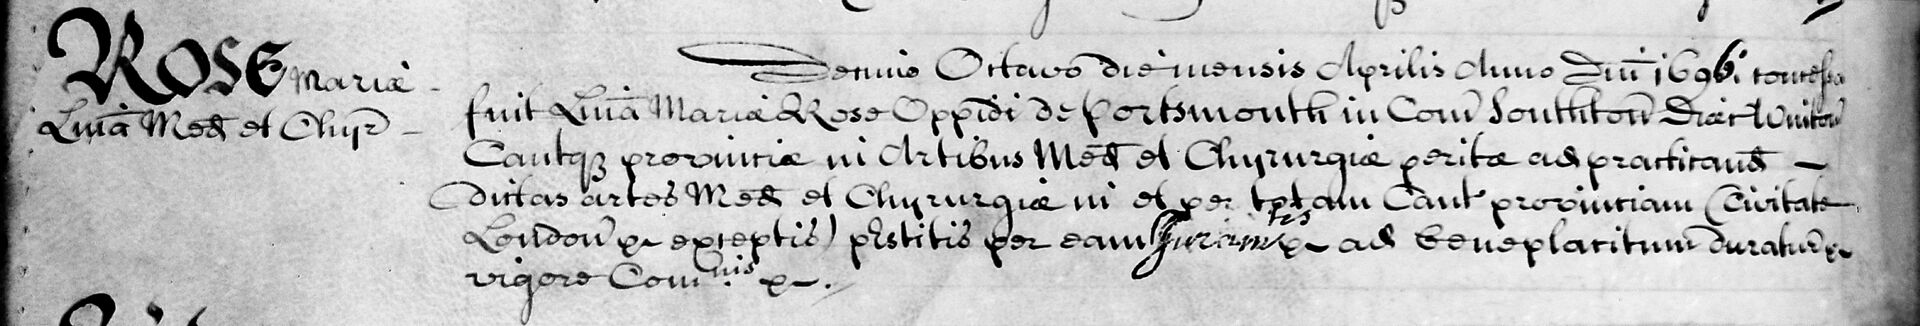 Rose Mariæ
Lnĩa Med et Chyr
Decimo Octavo die mensis Aprilis Anno Dni 1696: concessa
fuit Lnĩa Mariæ Rose Oppidi de Portsmouth in Com Southton Diœc Winton
Cantq provinciæ in Artibus Med et Chyrurgiæ peritæ ad practicand
dictas artes Med et Chyrurgiæ in et per totam Cant provinciam (Civitate
London &c exceptis) pstitis per eam Juramtis &c ad beneplacitum duratur &c
vigore Comnis &c.